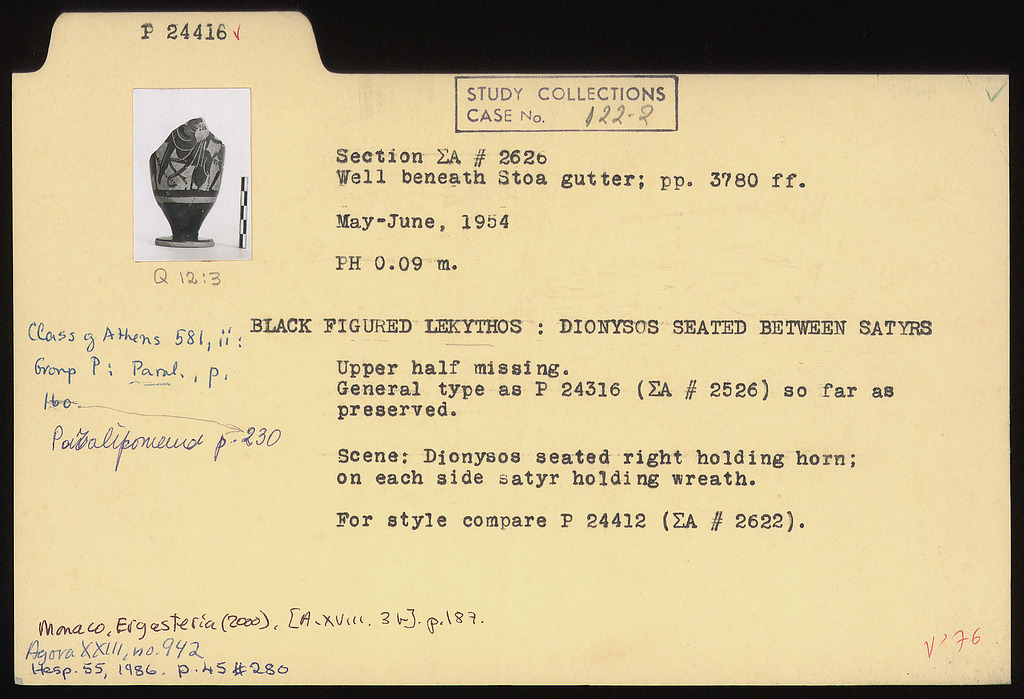 P 24416 ✓
STUDY COLLECTIONS
CASE No. 122-2
Section ΣΑ # 2626
Well beneath Stoa gutter; pp. 3780 ff.
May-June, 1954
PH 0.09 m.
Q 12:3
BLACK FIGURED LEKYTHOS : DIONYSOS SEATED BETWEEN SATYRS
Class of Athens 581, ii:
Group P: Paral., p.
160
Paralipomena p. 230
Upper half missing.
General type as P 24316 (ΣΑ # 2526) so far as
preserved.
Scene: Dionysos seated right holding horn;
on each side satyr holding wreath.
For style compare P 24412 (ΣΑ # 2622).
Monaco, Ergasteria (2000), [A.XVIII. 3 b]. p.187.
Agora XXIII, no. 942
Hesp. 55, 1986. p. 45 # 280
V '76